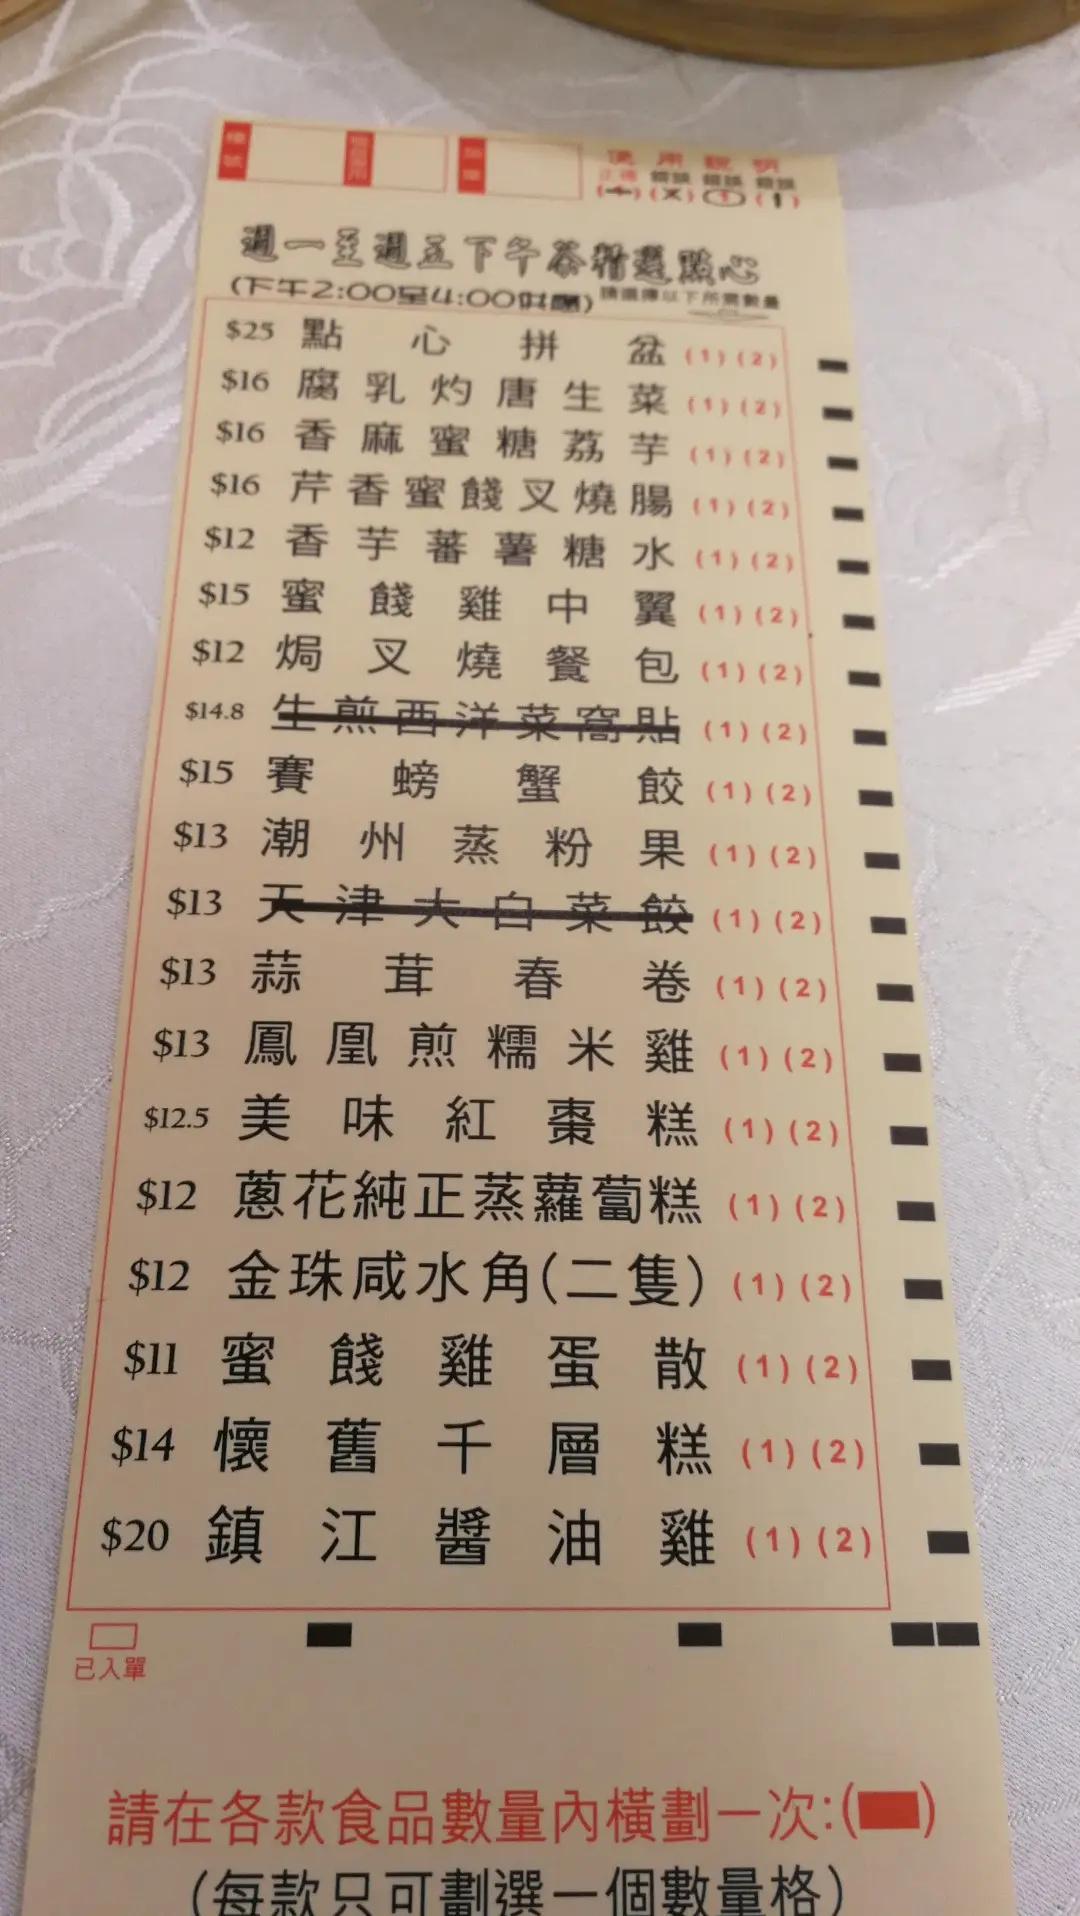 檯號
使用說明
正確 錯誤 錯誤 錯誤
週一至週五下午茶精選點心
(下午2:00至4:00供應) 請選擇以下所需數量
$25 點心拼盆 (1) (2)
$16 腐乳灼唐生菜 (1) (2)
$16 香麻蜜糖荔芋 (1) (2)
$16 芹香蜜餞叉燒腸 (1) (2)
$12 香芋蕃薯糖水 (1) (2)
$15 蜜餞雞中翼 (1) (2)
$12 焗叉燒餐包 (1) (2)
$14.8 生煎西洋菜窩貼 (1) (2)
$15 賽螃蟹餃 (1) (2)
$13 潮州蒸粉果 (1) (2)
$13 天津大白菜餃 (1) (2)
$13 蒜茸春卷 (1) (2)
$13 鳳凰煎糯米雞 (1) (2)
$12.5 美味紅棗糕 (1) (2)
$12 蔥花純正蒸蘿蔔糕 (1) (2)
$12 金珠咸水角(二隻) (1) (2)
$11 蜜餞雞蛋散 (1) (2)
$14 懷舊千層糕 (1) (2)
$20 鎮江醬油雞 (1) (2)
已入單
請在各款食品數量內橫劃一次:( )
(每款只可劃選一個數量格)